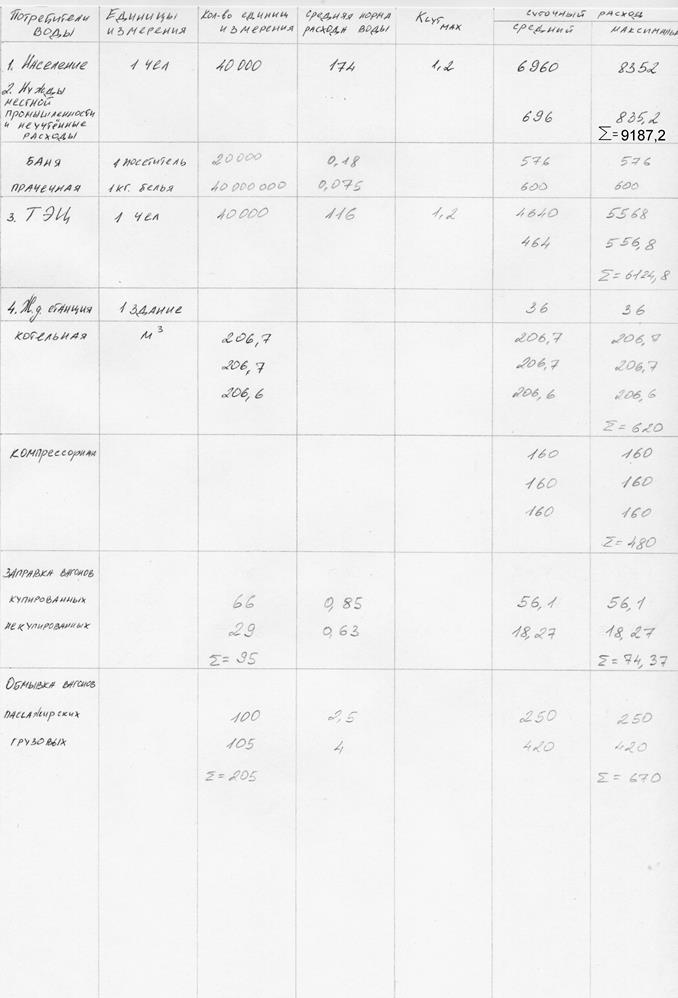 Потребители Единицы Кол-во единиц средняя норма Kсут max суточный расход
воды измерения измерения расхода воды средний максимальн
1. Население 1 чел 40 000 174 1,2 6960 8352
2. Нужды
местной
промышленности 696 835,2
и неучтённые
расходы Σ=9187,2
баня 1 посетитель 20000 0,18 576 576
прачечная 1кг. белья 40 000 000 0,075 600 600
3. ТЭЦ 1 чел 40000 116 1,2 4640 5568
464 556,8
Σ=6124,8
4. Ж.д станция 1 здание 36 36
котельная м³ 206,7 206,7 206,7
206,7 206,7 206,7
206,6 206,6 206,6
Σ=620
компрессорная 160 160
160 160
160 160
Σ=480
заправка вагонов
купированных 66 0,85 56,1 56,1
некупированных 29 0,63 18,27 18,27
Σ=95 Σ=74,37
Обмывка вагонов
пассажирских 100 2,5 250 250
грузовых 105 4 420 420
Σ=205 Σ=670